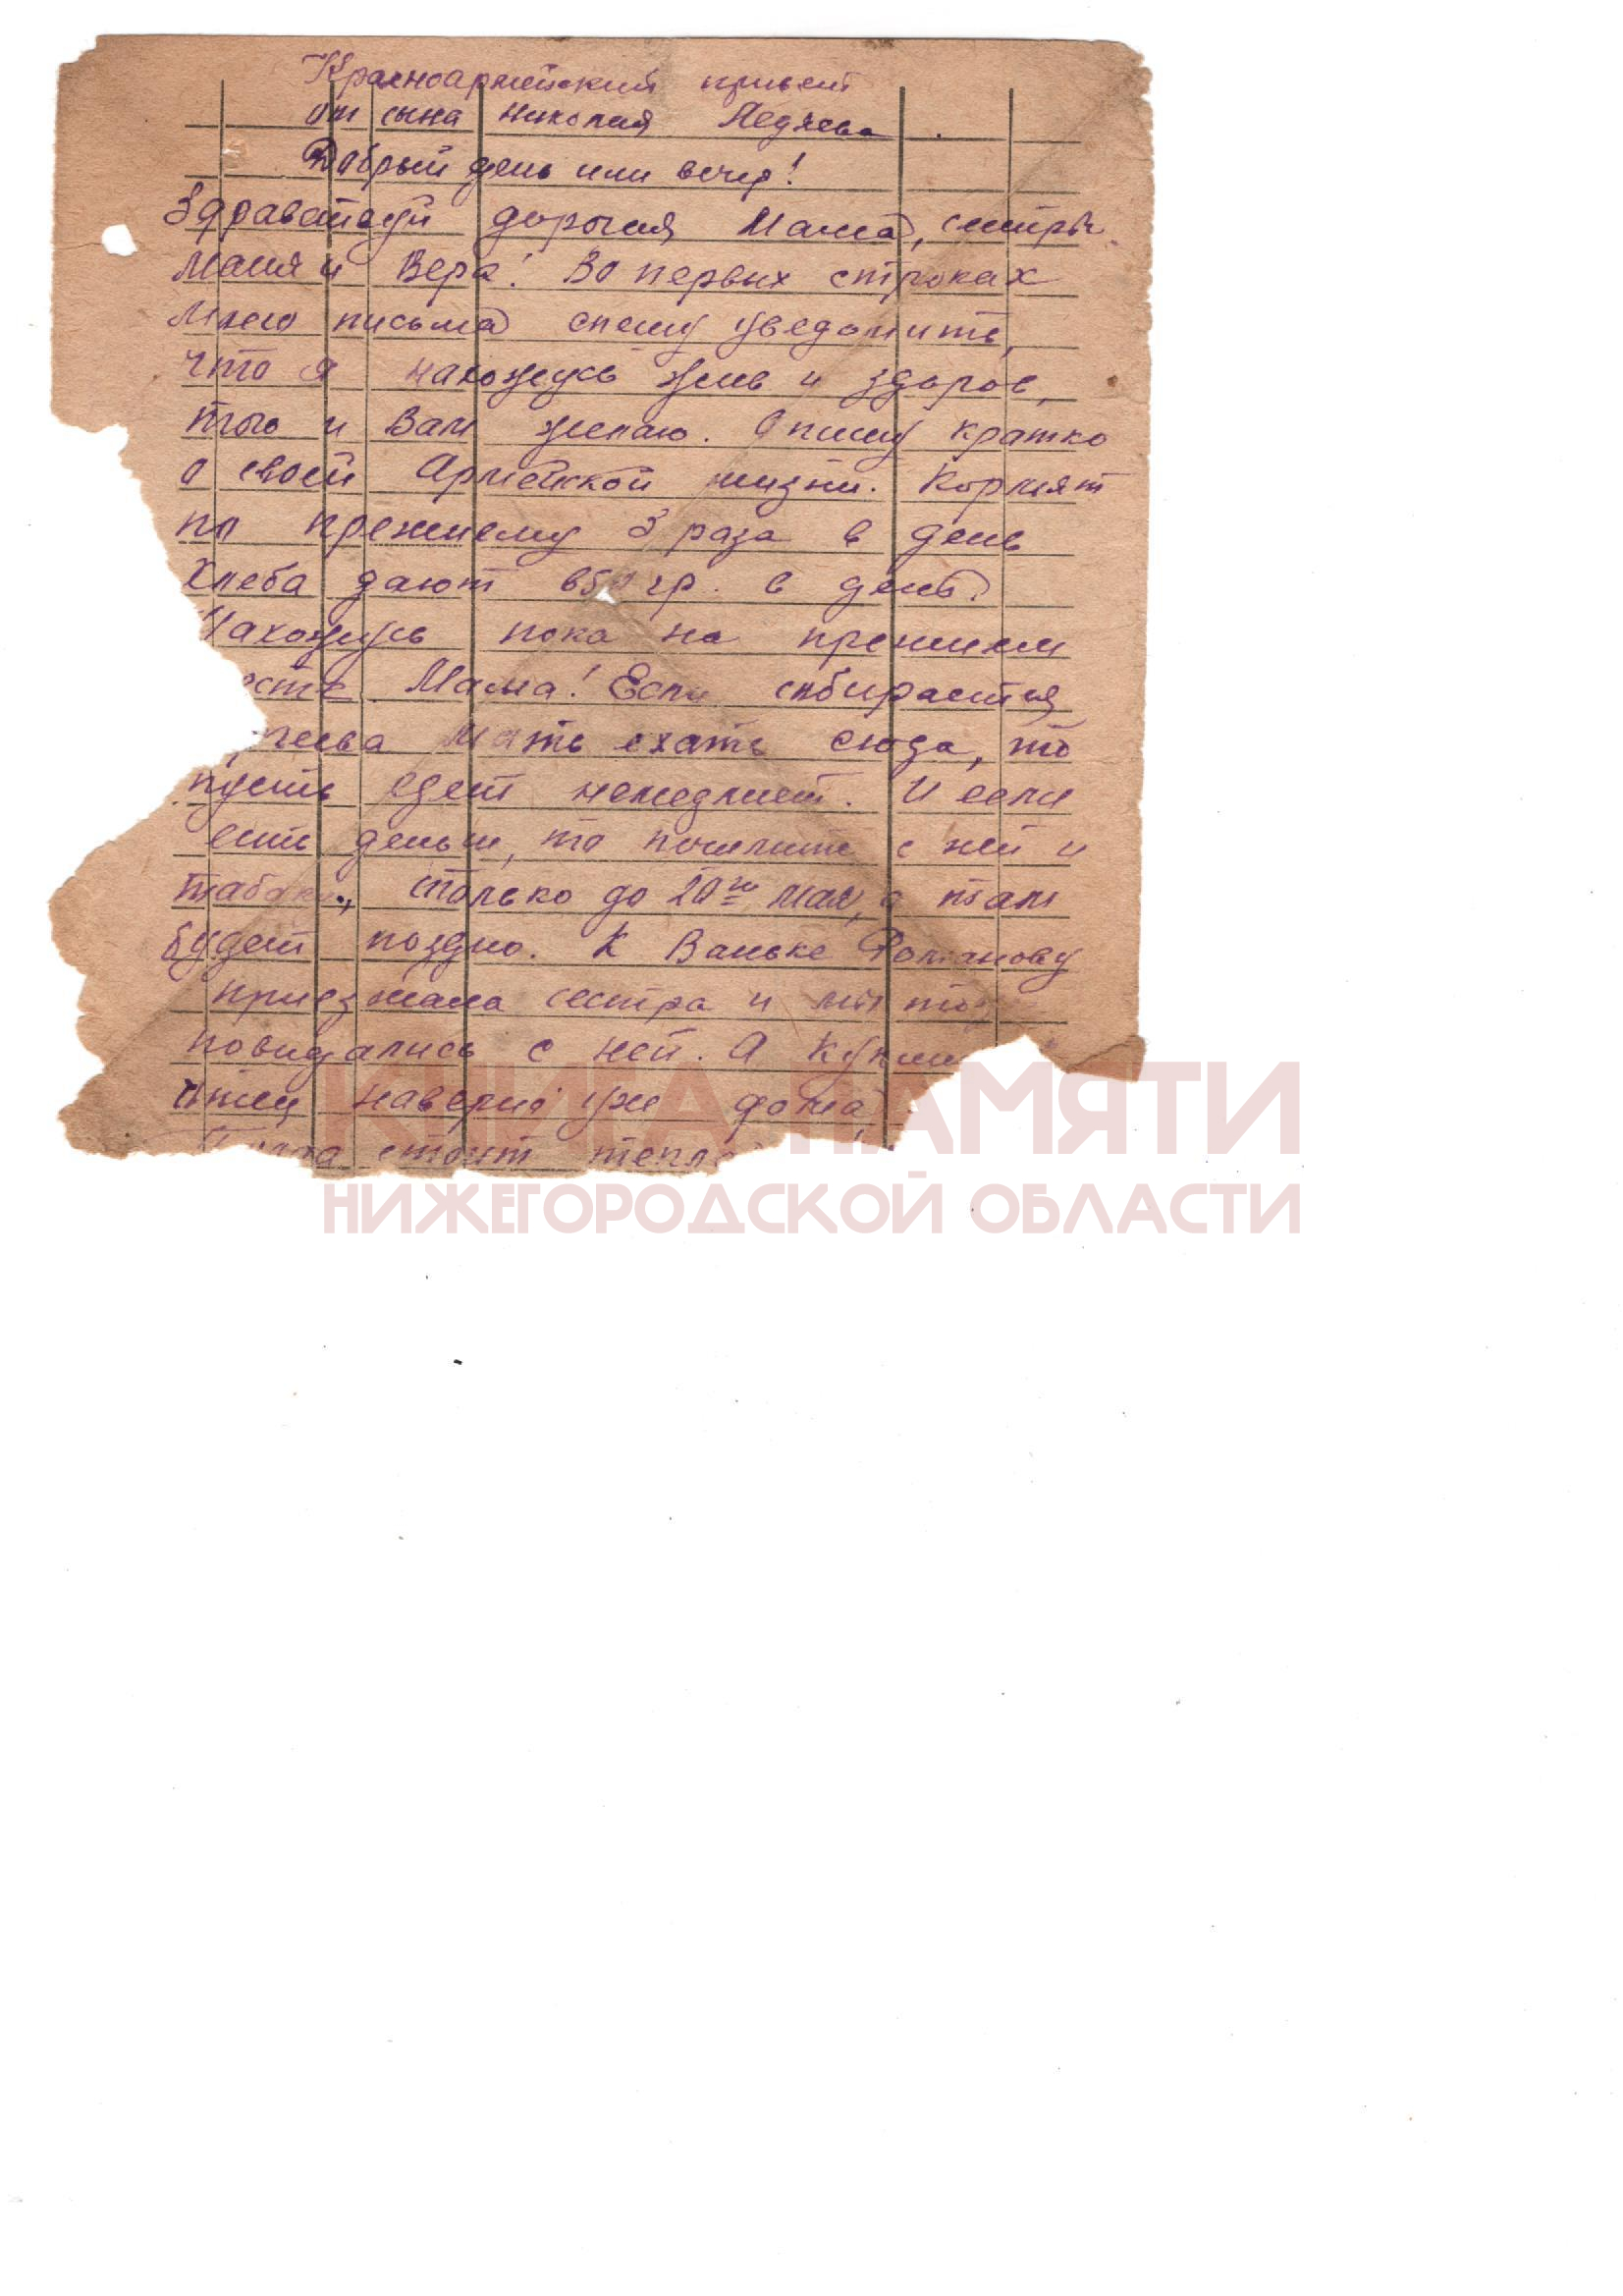 Красноармейский привет
от сына Николая Ледяева.
Добрый день или вечер!
Здравствуй дорогая Мама, сестры
Маня и Вера! Во первых строках
моего письма спешу уведомить,
что я нахожусь жив и здоров,
того и Вам желаю. Опишу кратко
о своей Армейской жизни. Кормят
по прежнему 3 раза в день
Хлеба дают 650 гр. в день.
Нахожусь пока на прежнем
Мама! Если собирается
мать ехать сюда, то
пусть едет немедлист. И если
есть деньги, то пошлите с ней и
табаку, только до 20го мая, а там
будет поздно. К Ваньке Романову
приезжала сестра и мы то
повидались с ней. А
отец наверно уже дома
стоит тепл
КНИГА ПАМЯТИ
НИЖЕГОРОДСКОЙ ОБЛАСТИ